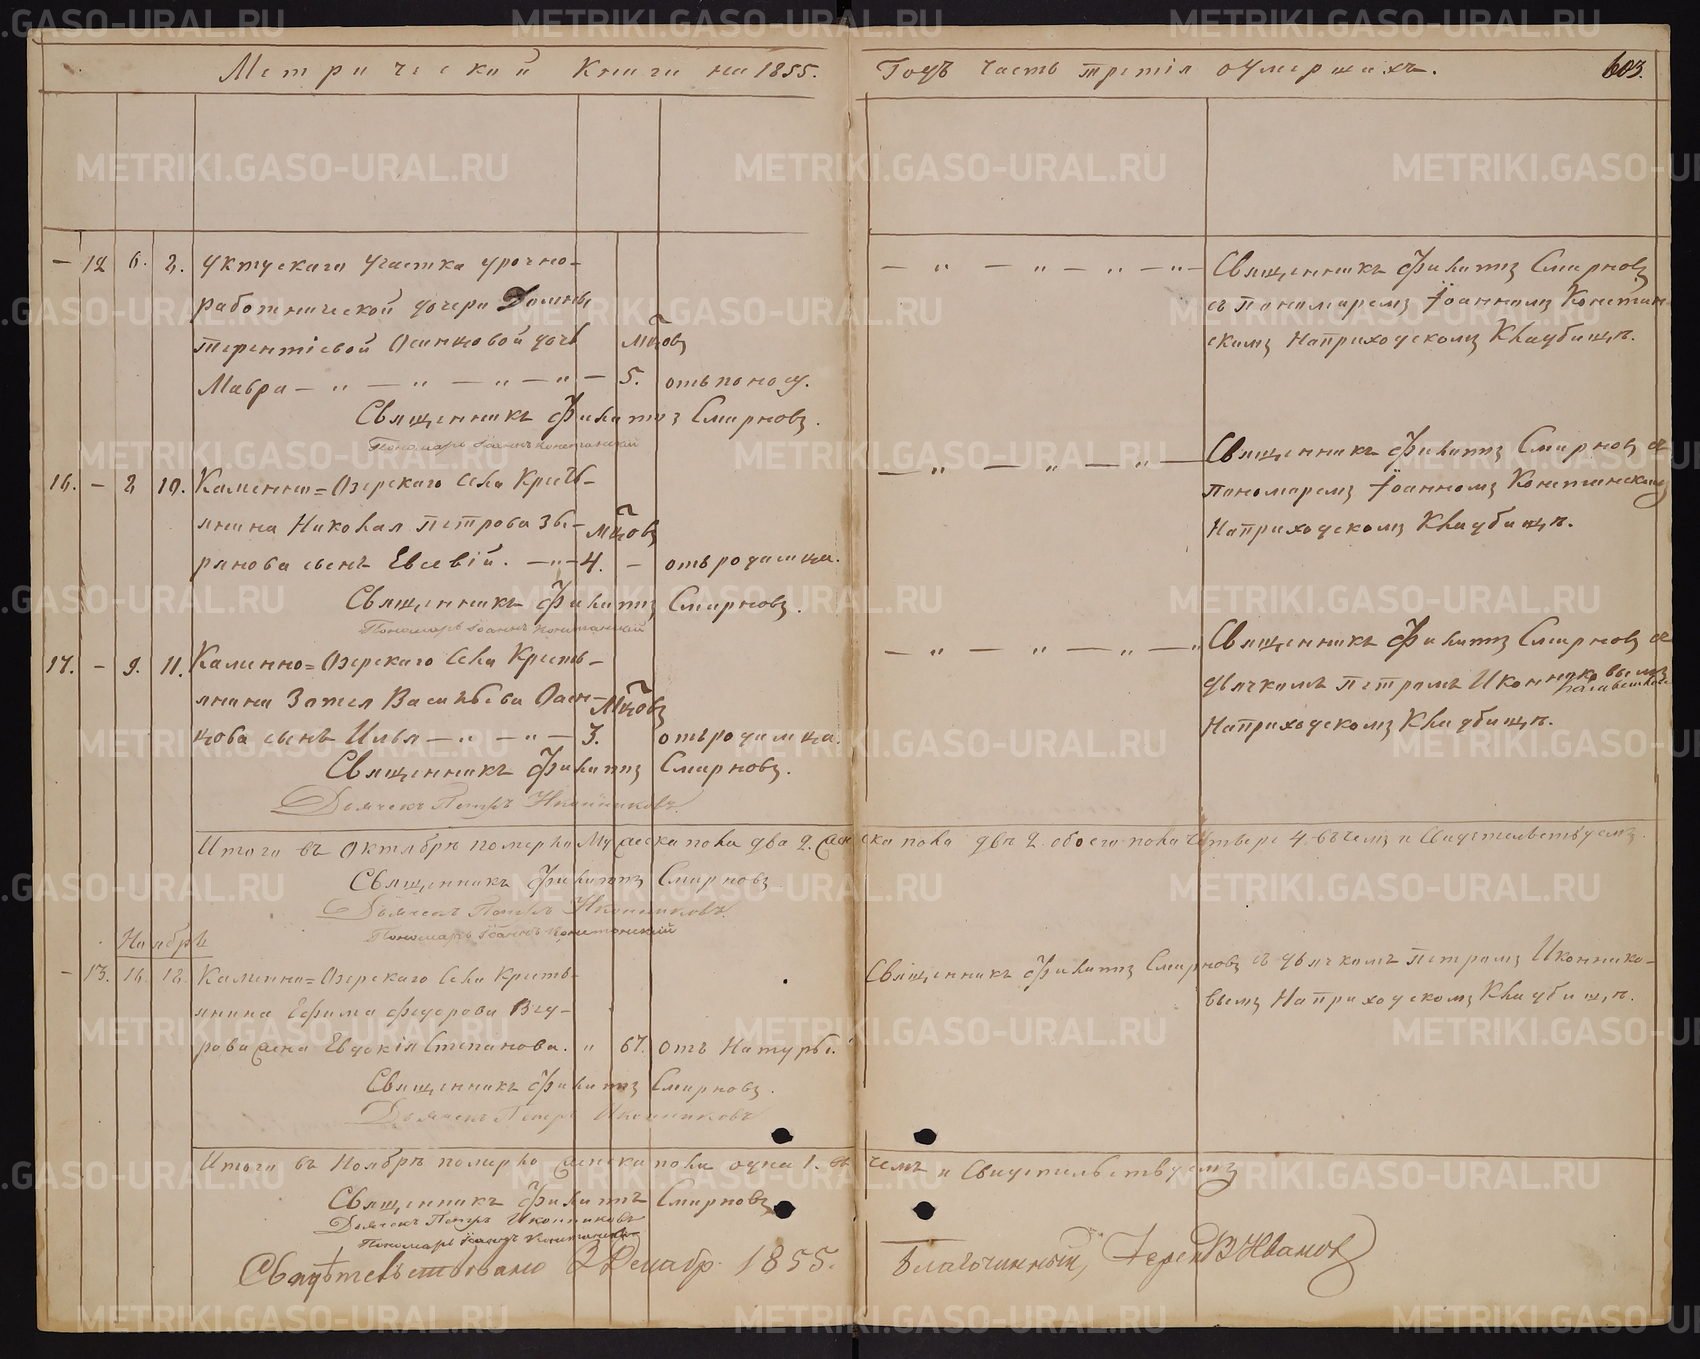 Метрической Книги на 1855.
Годъ часть третія оумершихъ.
603.
— 12 6. 8. Уктускаго участка урочно-
работнической дочери Домны
Терентіевой Осинцовой дочь мцовъ
Мавра — " — " — " — " — 5. отъ поносу.
Священникъ Филиппъ Смирновъ.
Пономарь Іоаннъ
16. — 2 10. Каменно=Озерскаго Села Крестъ-
янина Николая Петрова Зы- мцовъ
рянова сынъ Евсевій. — " — 4. — отъ родимца.
Священникъ Филиппъ Смирновъ.
Пономарь Іоаннъ
17. — 9. 11. Каменно=Озерскаго Села Кресть-
янина Зотея Васильева Осин- мцовъ
цова сынъ Илья — " — " — 3. отъ родимца.
Священникъ Филиппъ Смирновъ.
Дьячекъ Петръ Иконниковъ.
— " — " — " — " — Священникъ Филиппъ Смирновъ
съ пономаремъ Іоанномъ
скимъ На приходскомъ Кладбищѣ.
— " — " — " — Священникъ Филиппъ Смирновъ съ
пономаремъ Іоанномъ
На приходскомъ Кладбищѣ.
— " — " — " — " Священникъ Филиппъ Смирновъ съ
дьячкомъ Петромъ Иконниковымъ
На приходскомъ Кладбищѣ.
Итого въ Октябрѣ померло Мужеска пола два 2. женска пола двѣ 2. обоего пола четыре 4. въ чемъ и Свидетельствуемъ.
Священникъ Филиппъ Смирновъ
Дьячекъ Петръ Иконниковъ.
Пономарь Іоаннъ
Ноябрь
— 13. 16. 18. Каменно=Озерскаго Села Кресть-
янина Ефима Федорова
жена Евдокія Степанова. " 67. отъ Натуры.
Священникъ Филиппъ Смирновъ.
Дьячекъ Петръ Иконниковъ
Священникъ Филиппъ Смирновъ съ дьячкомъ Петромъ Иконнико-
вымъ На приходскомъ Кладбищѣ.
Итого въ Ноябрѣ померло женска пола одна 1. въ чемъ и Свидетельствуемъ
Священникъ Филиппъ Смирновъ
Дьячекъ Петръ Иконниковъ
Пономарь Іоаннъ
Свидѣтельствовано 2 Декабр. 1855.
Благочинный, Иванов
METRIKI.GASO-URAL.RU